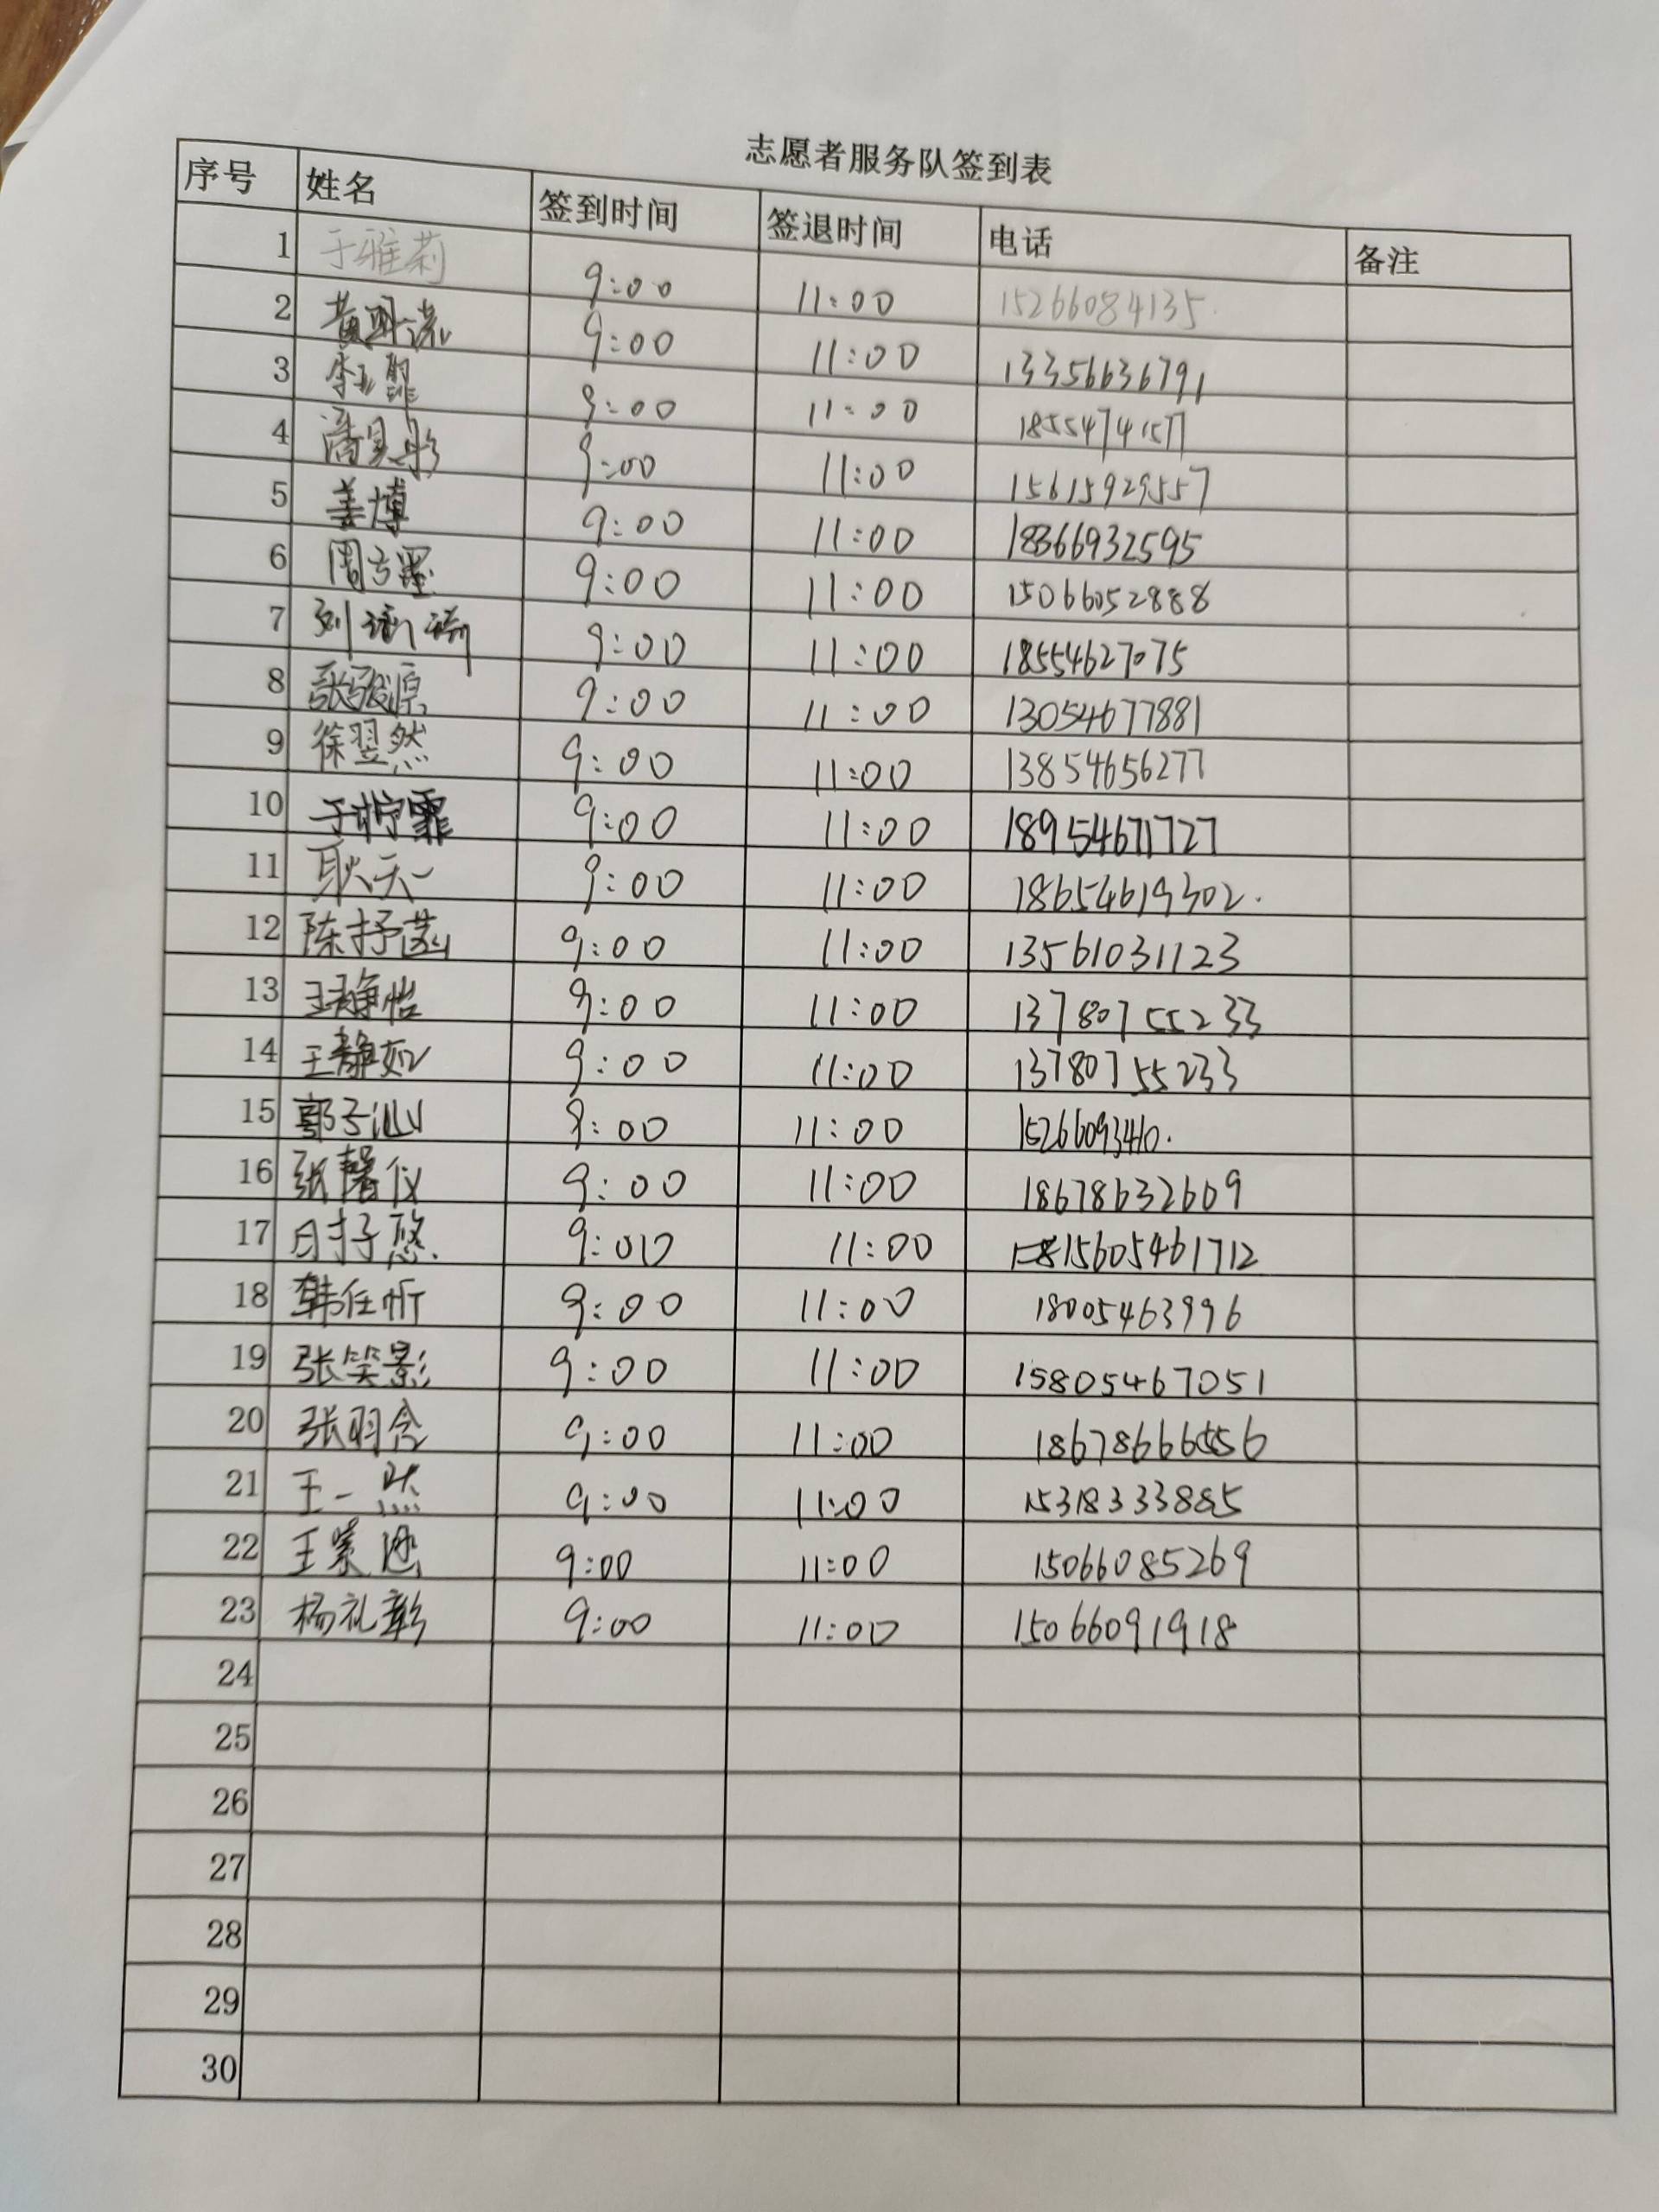 志愿者服务队签到表
序号 姓名 签到时间 签退时间 电话 备注
1 于雅莉 9:00 11:00 15266084135
2 9:00 11:00 13356636791
3 9:00 11:00 18554741577
4 9:00 11:00 15615929557
5 姜博 9:00 11:00 18366932595
6 周子墨 9:00 11:00 15066052888
7 9:00 11:00 18554627075
8 9:00 11:00 13054677881
9 徐翌然 9:00 11:00 13854656277
10 于柠霏 9:00 11:00 18954671727
11 耿天一 9:00 11:00 18654619302.
12 陈抒菡 9:00 11:00 13561031123
13 王静怡 9:00 11:00 13780755233
14 王静如 9:00 11:00 13780755233
15 郭子汕 9:00 11:00
16 张馨仪 9:00 11:00 18678632609
17 9:00 11:00 15605461712
18 韩任忻 9:00 11:00 18005463996
19 张笑影 9:00 11:00 15805467051
20 张羽含 9:00 11:00
21 王一然 9:00 11:00 15318333885
22 王 9:00 11:00 15066085269
23 杨礼彰 9:00 11:00 15066091918
24
25
26
27
28
29
30